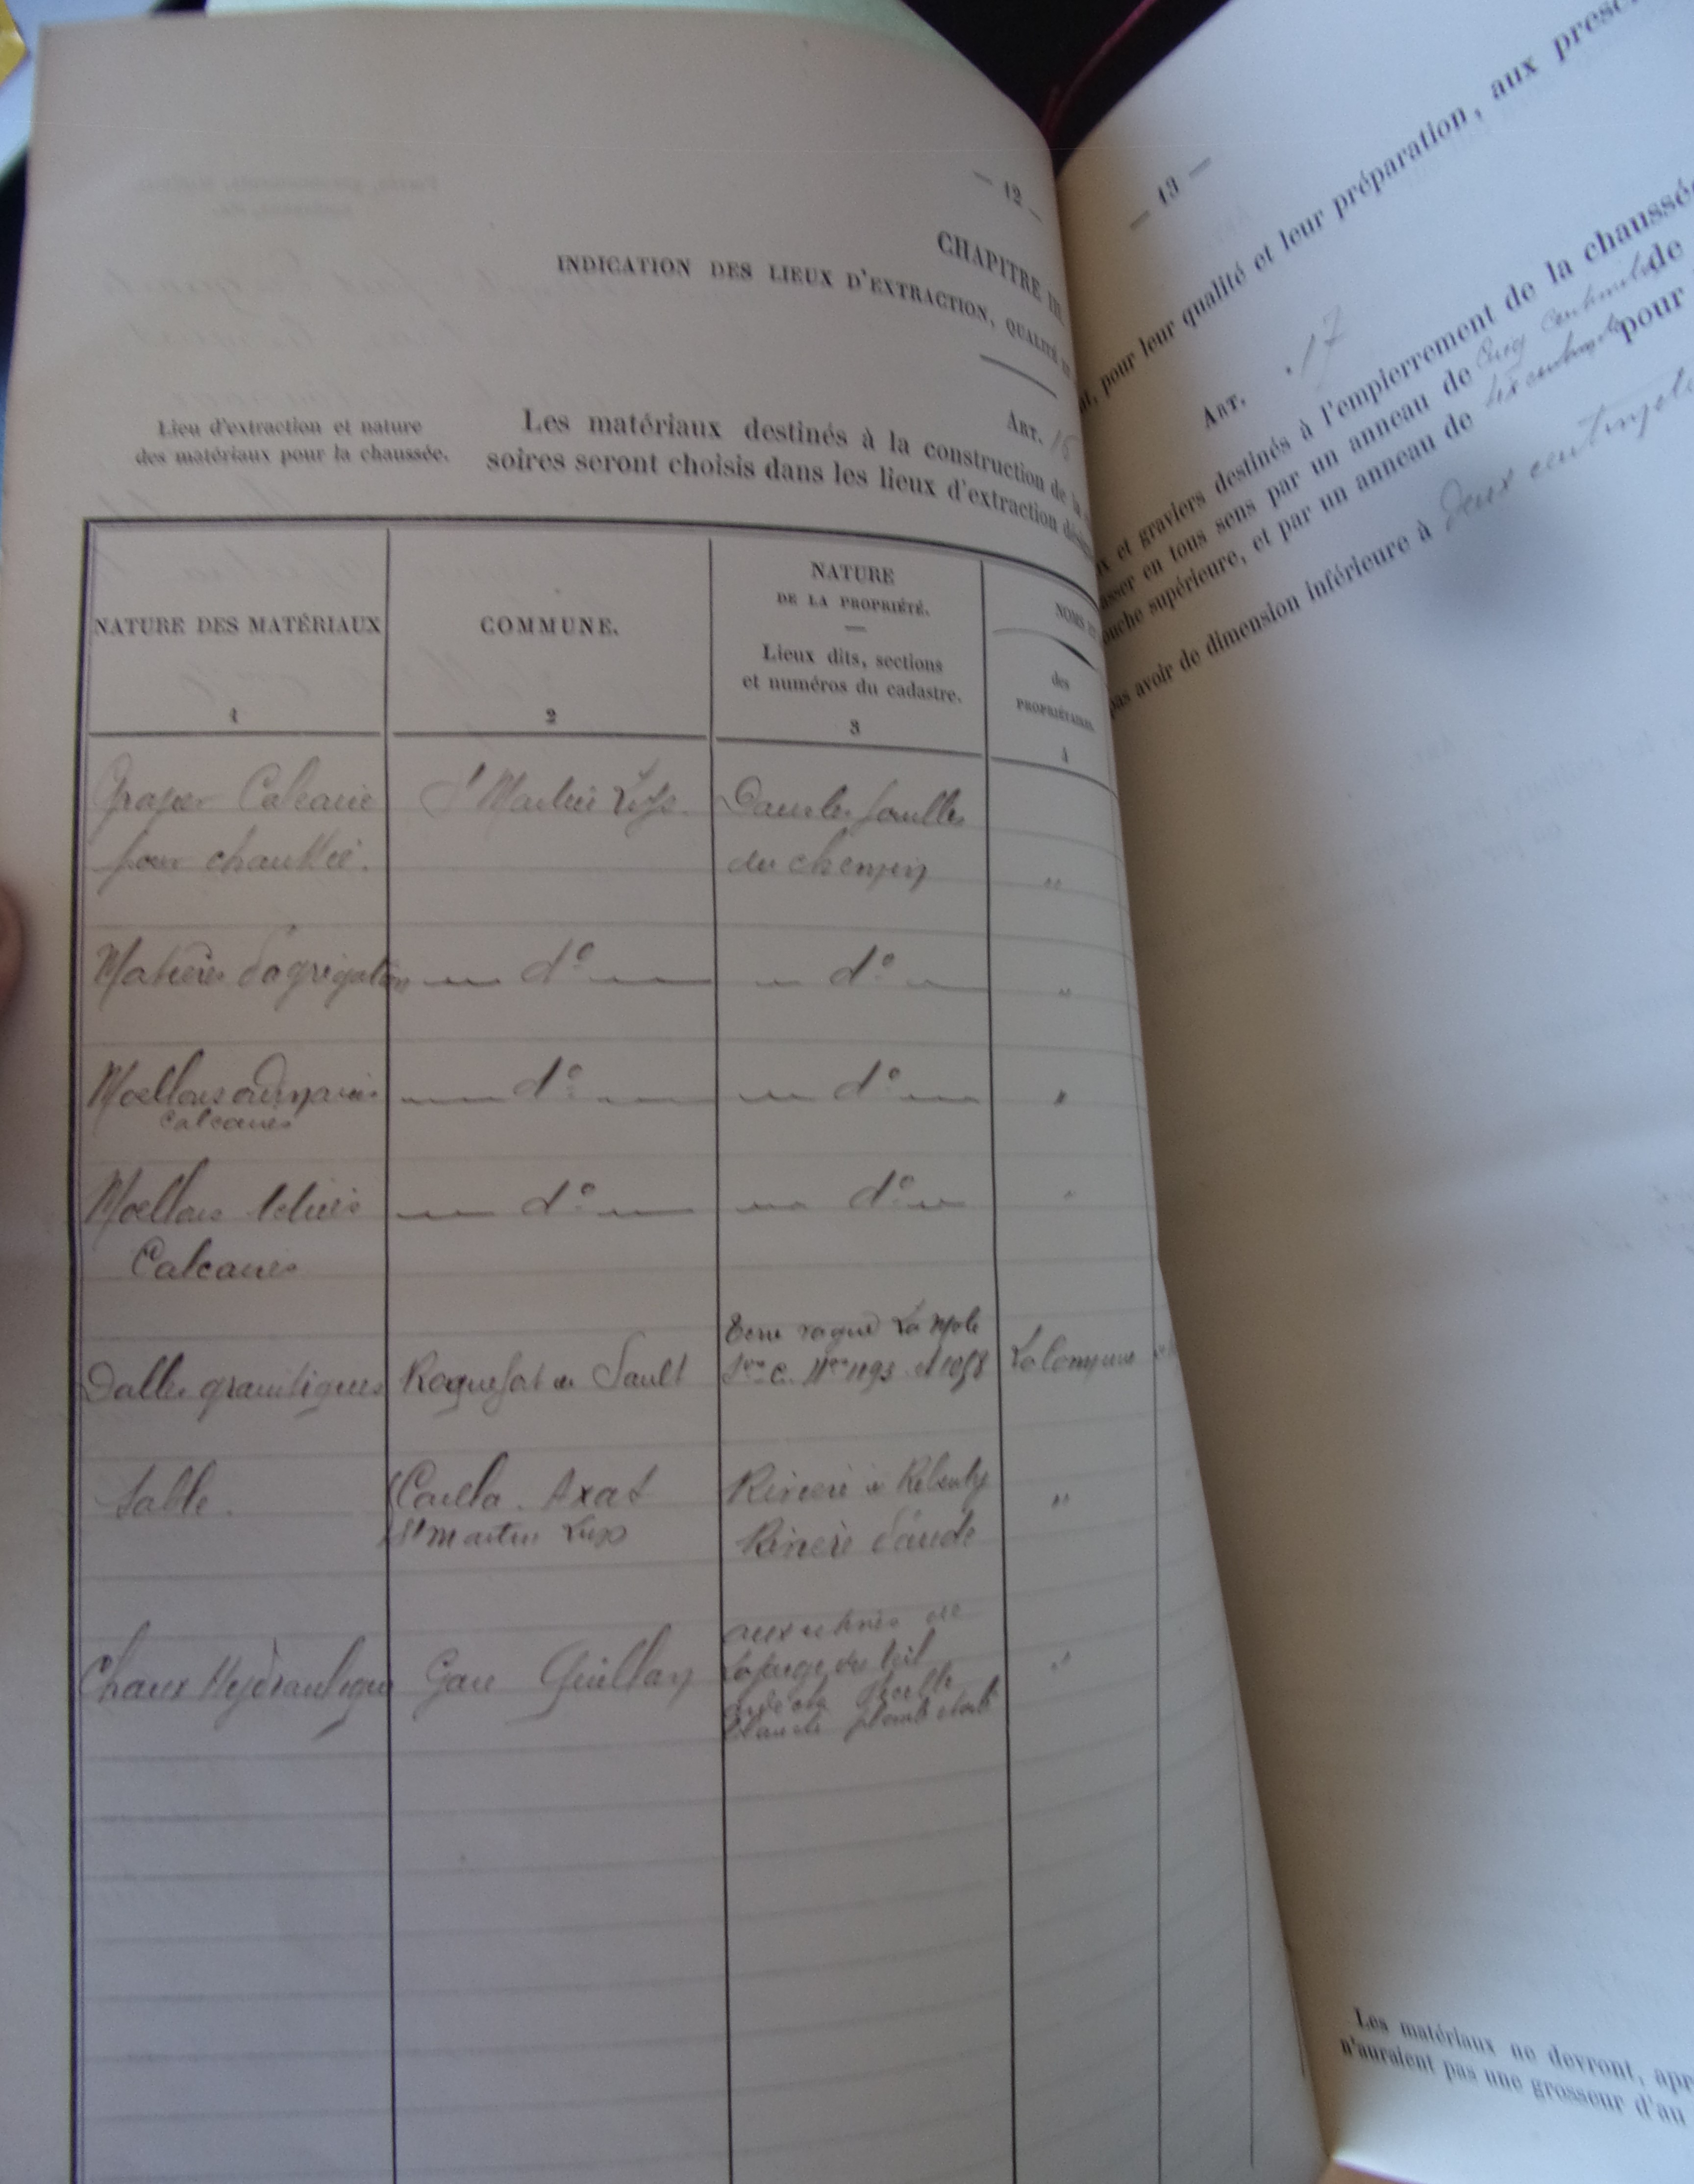 — 12 —
CHAPITRE III.
INDICATION DES LIEUX D'EXTRACTION, QUALITÉ
ART. 16
Lieu d'extraction et nature
des matériaux pour la chaussée.
Les matériaux destinés à la construction de la
soires seront choisis dans les lieux d'extraction
NATURE DES MATÉRIAUX
1
COMMUNE.
2
NATURE
DE LA PROPRIÉTÉ.
—
Lieux dits, sections
et numéros du cadastre.
3
NOMS
des
PROPRIÉTAIRES
4
Calcaire St Martin Lys. Dans les fouilles
pour chaussée. du chemin "
Matières d'agrégation — do — — do — "
Moellons ordinaires — do — — do — "
Calcaires
Moellons — do — — do — "
Calcaires
Terre vague La
Dalles granitiques Roquefort de Sault Son C. Nos 1193 et 1058 La Commune
Sable. Cailla. Axat Rivière Rebenty "
St Martin Lys Rivière d'aude
aux usines de
Chaux Hydraulique Gare Quillan Lafarge du teil "
— 13 —
pour leur qualité et leur préparation, aux
ART. 17
et graviers destinés à l'empierrement de la chaussée
en tous sens par un anneau de cinq centimètres de
supérieure, et par un anneau de six centimètres pour
pas avoir de dimension inférieure à deux centimètres
Les matériaux ne devront,
n'auraient pas une grosseur d'au